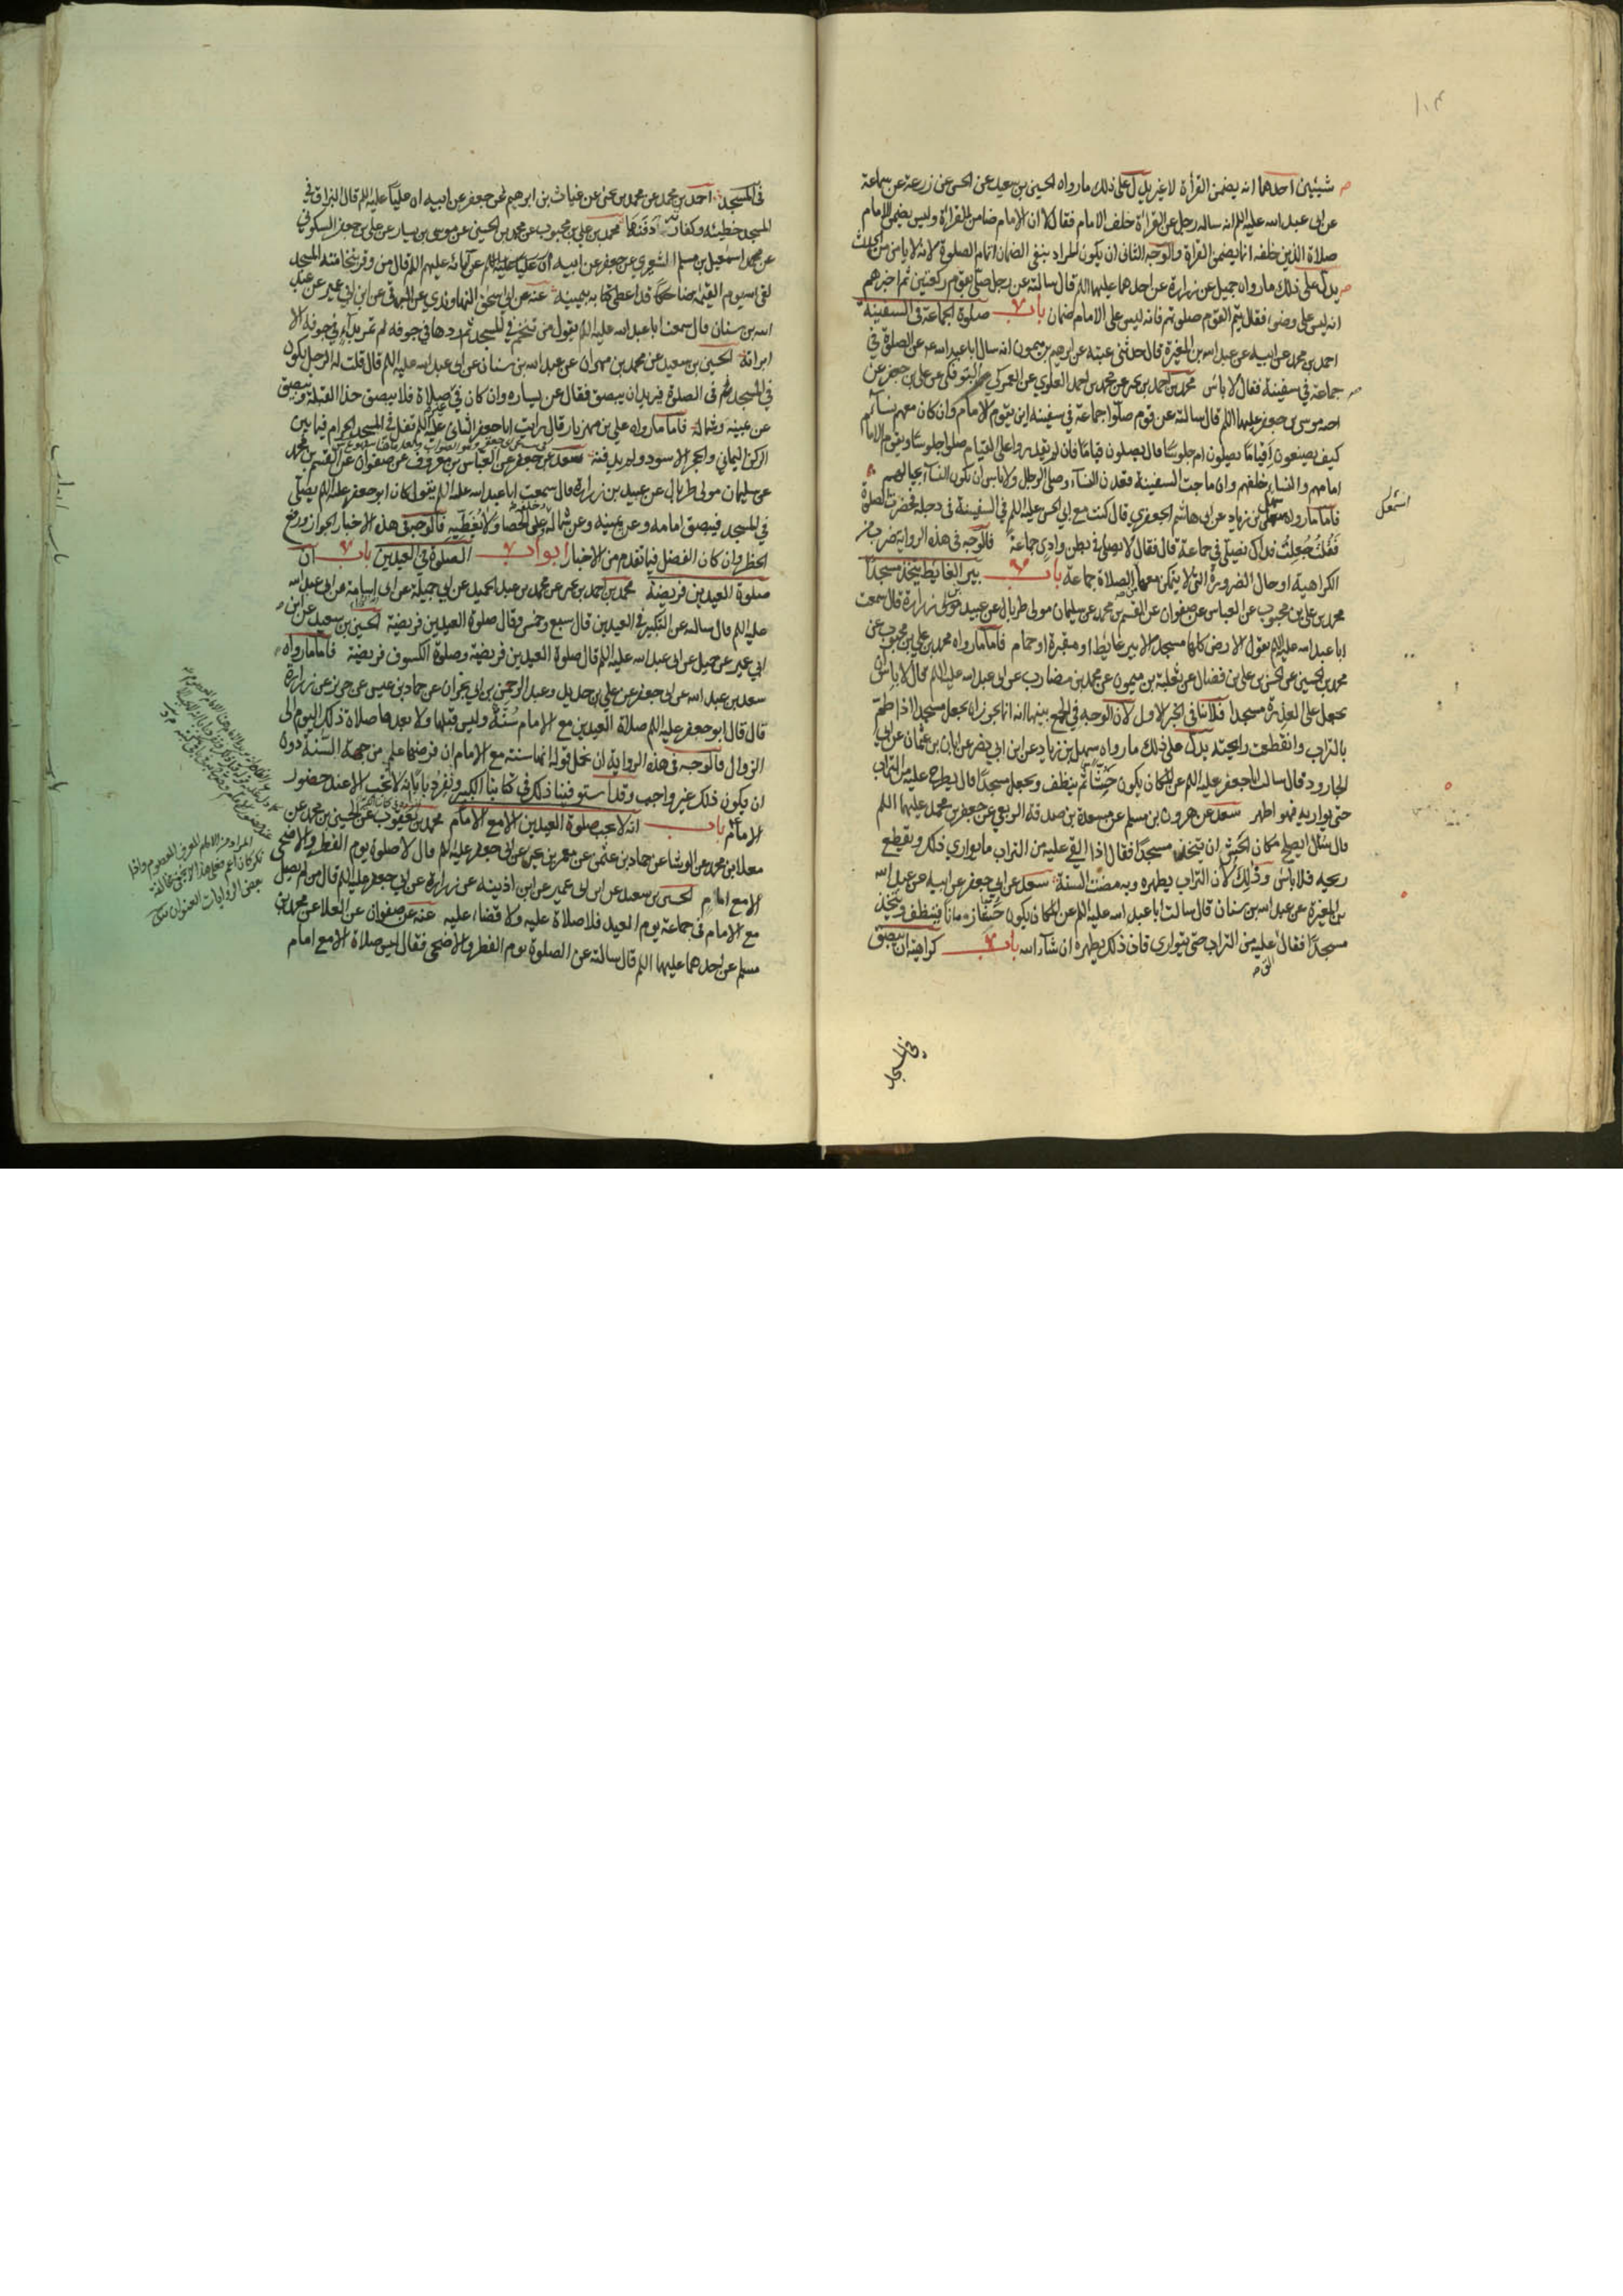 شيئين احدهما انه يضمن القرأة لا غير يدل على ذلك ما رواه الحسين بن سعيد عن الحسن عن زرعة عن سماعة
عن ابى عبد الله عليه السلم انه ساله رجل عن القرائة خلف الامام فقال لا ان الامام ضامن للقرائة وليس يضمن الامام
صلاة الذين خلفه انما يضمن القرأة والوجه الثانى ان يكون المراد بنفى الضمان اتمام الصلوة لانه لا يامن من الحدث
يدل على ذلك ما رواه جميل عن زرارة عن احدهما عليهما السلم قال سالته عن رجل صلى بقوم ركعتين ثم اخبرهم
انه ليس على وضوء فقال يتم القوم صلوتهم فانه ليس على الامام ضمان باب صلوة الجماعة فى السفينة
احمد بن محمد عن ابيه عن عبد الله بن المغيرة قال حدثنى عيينة عن ابرهيم بن ميمون انه سال ابا عبد الله عن الصلوة في
جماعة في سفينة فقال لا باس محمد بن احمد بن يحيى عن محمد بن احمد العلوي عن العمركي البوفكى عن علي بن جعفر عن
اخيه موسى بن جعفر عليهما السلم قال سالته عن قوم صلوا جماعة في سفينة اين يقوم الامام وان كان معهم نساء
كيف يصنعون أقياما يصلون ام جلوسا قال يصلون قياما فان لم يقدروا على القيام صلوا جلوسا ويقوم الامام
امامهم والنساء خلفهم وان ماجت السفينة قعدن النساء وصلى الرجال ولا باس ان يكون النساء بحيالهم
فاما ما رواه سهل بن زياد عن ابى هاشم الجعفري قال كنت مع ابي الحسن عليه السلم في السفينة في دجلة فحضرت الصلوة
فقلت جعلت فداك نصلى في جماعة قال فقال لا تصلى في بطن وادي جماعة فالوجه فى هذه الرواية ضرب من
الكراهية او حال الضرورة التى لا يتمكن معها الصلاة جماعة باب بير الغايط يتخذ مسجدا
محمد بن على بن محبوب عن العباس عن صفوان عن القسم بن محمد عن سليمان مولى طربال عن عبيد بن زرارة قال سمعت
ابا عبد الله عليه السلم يقول الارض كلها مسجد الا بير غايط او مقبرة او حمام فاما ما رواه محمد بن علي بن محبوب عن
محمد بن الحسين عن الحسن بن على بن فضال عن ثعلبة بن ميمون عن محمد بن مضارب عن ابى عبد الله عليه السلم قال لا باس ان
يجعل على العذرة مسجدا فلا ينافى الخبر الاول لان الوجه في الجمع بينهما انه انما يجوز ان يجعل مسجدا اذا طم
بالتراب وانقطعت رايحته يدل على ذلك ما رواه سهل بن زياد عن ابن ابي نصر عن ابان بن عثمان عن ابي
الجارود قال سالت ابا جعفر عليه السلم عن المكان يكون حشا ثم ينظف ويجعل مسجدا قال يطرح عليه من التراب
حتى يواريه فهو اطهر سعد عن هرون بن مسلم عن مسعدة بن صدقة الربعي عن جعفر بن محمد عليهما السلم
قال سئل ايصلح مكان الحش ان يتخذ مسجدا فقال اذا القي عليه من التراب ما يواري ذلك ويقطع
ريحه فلا باس وذلك لان التراب يطهره وبه مضت السنة سعد عن ابي جعفر عن ابيه عن عبد الله
بن المغيرة عن عبد الله بن سنان قال سالت ابا عبد الله عليه السلم عن المكان يكون حشا زمانا فينظف ويتخذ
مسجدا فقال عليه من التراب حتى يتوارى فان ذلك يطهره ان شاء الله باب كراهية ان يبصق
الق
في المسجد
فى المسجد احمد بن محمد عن محمد بن يحيى عن غياث بن ابرهيم عن جعفر عن ابيه ان عليا عليه السلم قال البزاق في
المسجد خطيئة وكفارته دفنها محمد بن علي بن محبوب عن محمد بن الحسين عن موسى بن يسار عن على بن جعفر السكوني
عن محمد اسمعيل بن مسلم الشعيري عن جعفر عن ابيه ان عليا عليه السلم عن آبائه عليهم السلم قال من وقر بنخامته المسجد
لقى الله يوم القيمة ضاحكا قد اعطى كتابه بيمينه عنه عن ابى اسحق النهاوندي عن البرقى عن ابن ابي عمير عن عبد
الله بن سنان قال سمعت ابا عبد الله عليه السلم يقول من تنخع في المسجد ثم ردها في جوفه لم تمر بداء في جوفه الا
ابرأته الحسين بن سعيد عن محمد بن مهران عن عبد الله بن سنان عن ابى عبد الله عليه السلم قال قلت له الرجل يكون
في المسجد في الصلوة فيريد ان يبصق فقال عن يساره وان كان في غير صلاة فلا يبصق حذا القبلة ويبصق
عن يمينه وشماله فاما ما رواه علي بن مهزيار قال رايت ابا جعفر الثانى عليه السلم تفل في المسجد الحرام فيما بين
الركن اليماني والحجر الاسود ولم يدفنه سعد عن جعفر عن العباس بن معروف عن صفوان عن القسم بن محمد
عن سليمان مولى طربال عن عبيد بن زرارة قال سمعت ابا عبد الله عليه السلم يقول كان ابو جعفر عليه السلم يصلى
في المسجد فيبصق امامه وعن يمينه وعن شماله وخلفه على الحصا ولا يغطيه فالوجه فى هذه الاخبار الجواز ورفع
الحظر وان كان الفضل فيما تقدم من الاخبار ابواب الصلوة في العيدين باب ان
صلوة العيدين فريضة محمد بن احمد بن يحيى عن محمد بن عبد الحميد عن ابي جميلة عن ابى اسامة عن ابى عبد الله
عليه السلم قال سالته عن التكبير في العيدين قال سبع وخمس وقال صلوة العيدين فريضة الحسين بن سعيد عن ابن
ابي عمير عن جميل عن ابى عبد الله عليه السلم قال صلوة العيدين فريضة وصلوة الكسوف فريضة فاما ما رواه
سعد بن عبد الله عن ابى جعفر عن علي بن حديد وعبد الرحمن بن ابي نجران عن حماد بن عيسى عن حريز عن زرارة
قال قال ابو جعفر عليه السلم صلاة العيدين مع الامام سنة وليس قبلها ولا بعدها صلاة ذلك اليوم الى
الزوال فالوجه فى هذه الرواية ان نحمل قوله انها سنة مع الامام ان فرضها علم من جهة السنة دون
ان يكون ذلك غير واجب وقد استوفينا ذلك في كتابنا الكبير ونفرد بابا انه لا تجب الا عند حضور
الامام باب انه لا يجب صلوة العيدين الا مع الامام محمد بن يعقوب عن الحسين بن محمد عن
معلا بن محمد عن الوشا عن حماد بن عثمن عن معمر بن يحيى عن ابى جعفر عليه السلم قال لا صلوة يوم الفطر والاضحى
الا مع امام الحسين بن سعيد عن ابن ابى عمير عن ابن اذينة عن زرارة عن ابي جعفر عليه السلم قال من لم يصل
مع الامام فى جماعة يوم العيد فلا صلاة عليه ولا قضاء عليه عنه عن صفوان عن العلا عن محمد بن
مسلم عن احدهما عليهما السلم قال سالته عن الصلوة يوم الفطر والاضحى فقال ليس صلاة الا مع امام